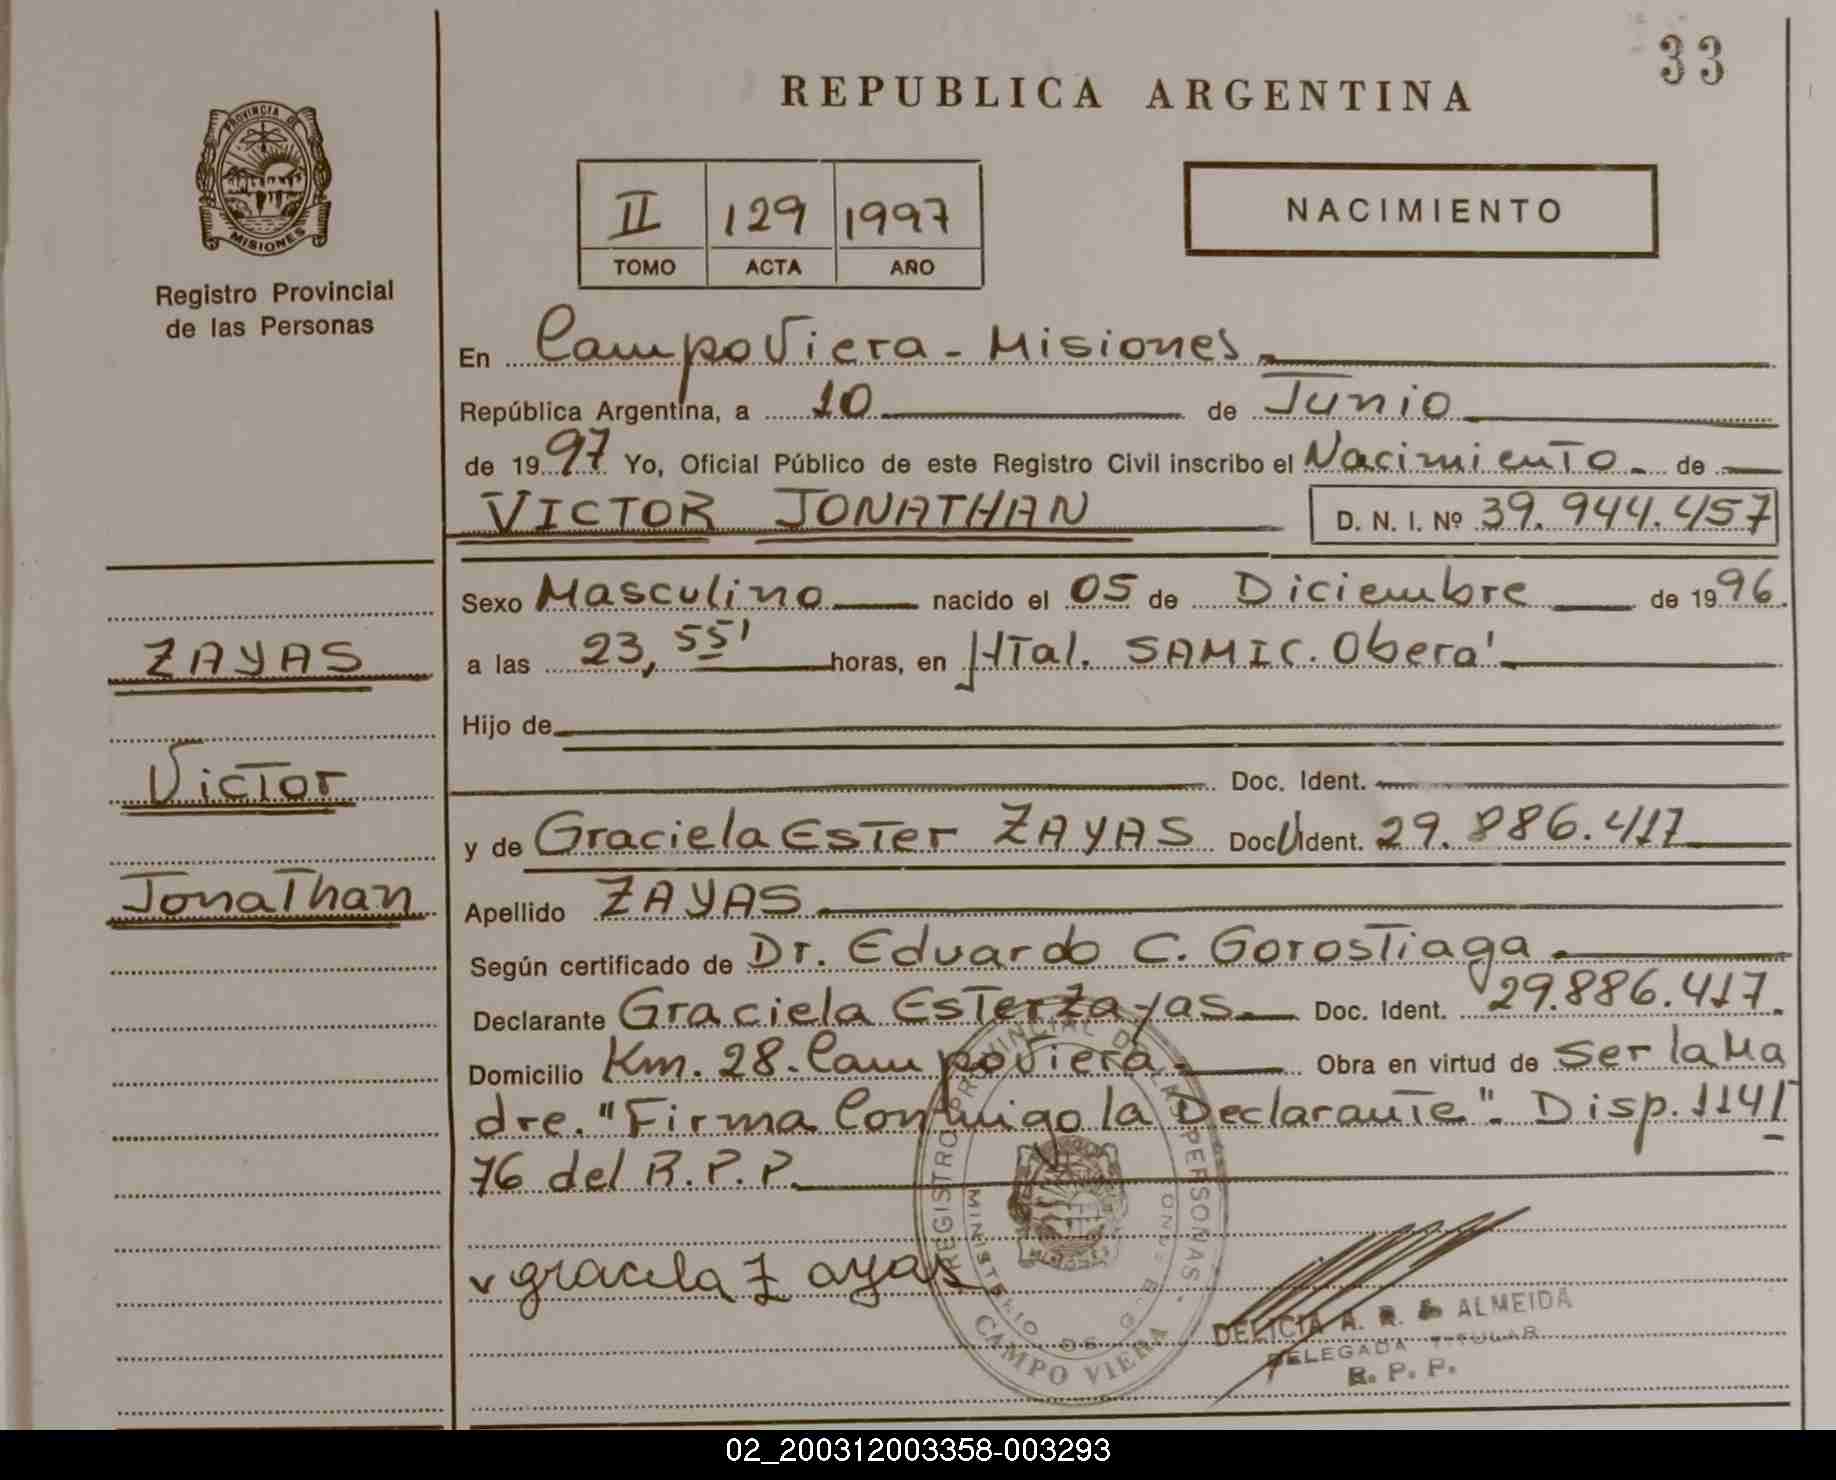 33
REPUBLICA ARGENTINA
PROVINCIA DE
MISIONES
Registro Provincial
de las Personas
II 129 1997
TOMO ACTA AÑO
NACIMIENTO
En Campo Viera - Misiones
República Argentina, a 10 de Junio
de 1997 Yo, Oficial Público de este Registro Civil inscribo el Nacimiento de
VICTOR JONATHAN D. N. I. Nº 39.944.457
Sexo Masculino nacido el 05 de Diciembre de 1996.
a las 23,55' horas, en Htal. SAMIC. Oberá
Hijo de
Doc. Ident.
y de Graciela Ester ZAYAS Doc. Ident. 29.886.417
Apellido ZAYAS
Según certificado de Dr. Eduardo C. Gorostiaga.
Declarante Graciela Ester Zayas. Doc. Ident. 29.886.417.
Domicilio Km. 28. Campo Viera. Obra en virtud de ser la Ma
dre. "Firma Conmigo la Declarante". Disp. 114/
76 del R.P.P.
ZAYAS
Victor
Jonathan
v gracila Zayas
REGISTRO PROVINCIAL DE LAS PERSONAS
MINISTERIO DE
CAMPO VIERA
DELICIA A. R. ALMEIDA
DELEGADA TITULAR
R. P. P.
02_200312003358-003293